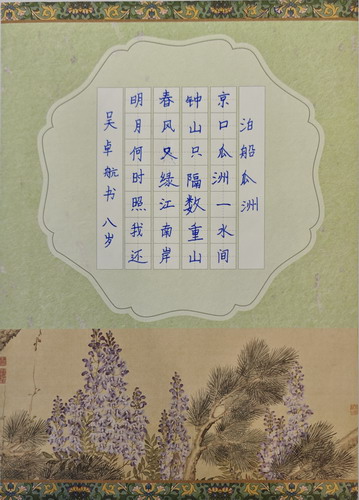 泊船瓜洲
京口瓜洲一水间
钟山只隔数重山
春风又绿江南岸
明月何时照我还
吴卓航书 八岁